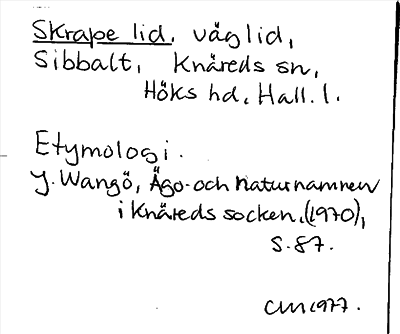 Skrape lid, våglid,
Sibbalt, Knäreds sn,
Höks hd, Hall. l.
Etymologi.
J. Wangö, Ägo- och naturnamnen
i Knäreds socken, (1970),
s. 87.
CM 1977.